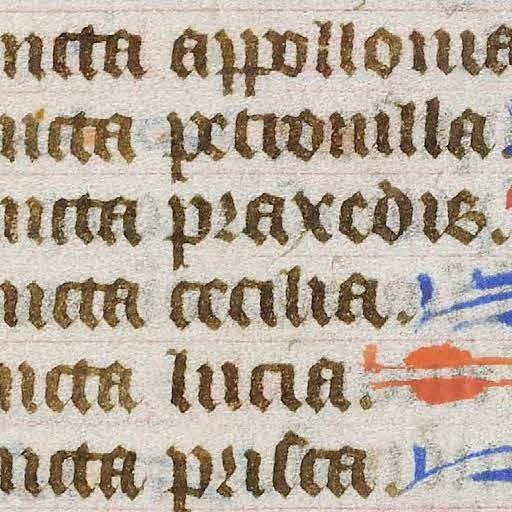 ncta appollonia
ncta petronilla.
ncta praxedis.
ncta cecilia.
ncta lucia.
ncta prisca.